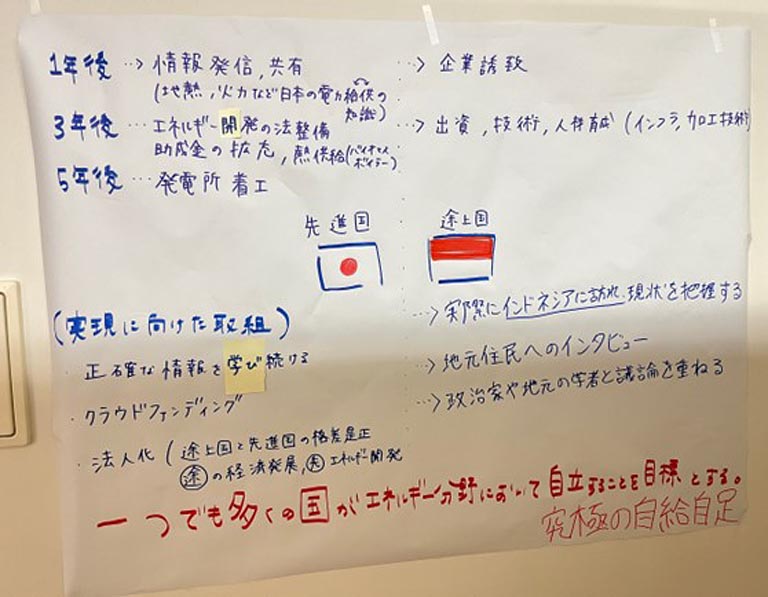 1年後 … 情報発信,共有
(地熱,火力など日本の電力給供の知識)
3年後 … エネルギー開発の法整備
助成金の拡充,熱供給(バイオマスボイラー)
5年後 … 発電所着工
…> 企業誘致
…> 出資,技術,人材育成(インフラ,加工技術)
先進国
途上国
(実現に向けた取組)
・正確な情報を学び続ける
・クラウドファンディング
・法人化(途上国と先進国の格差是正
途の経済発展,先エネルギー開発
…> 実際にインドネシアに訪れ現状を把握する
…> 地元住民へのインタビュー
…> 政治家や地元の学者と議論を重ねる
一つでも多くの国がエネルギー分野において自立することを目標とする。
究極の自給自足